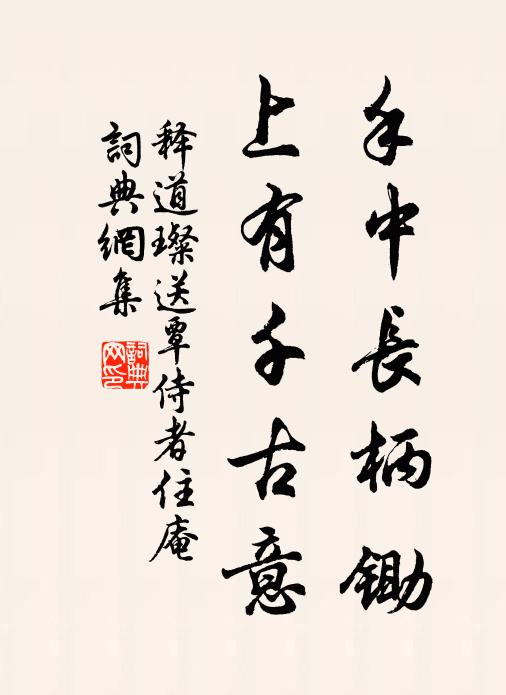 手中長柄鋤
上有千古意
释道璨送覃侍者住庵
詞典網集
詞典
网印